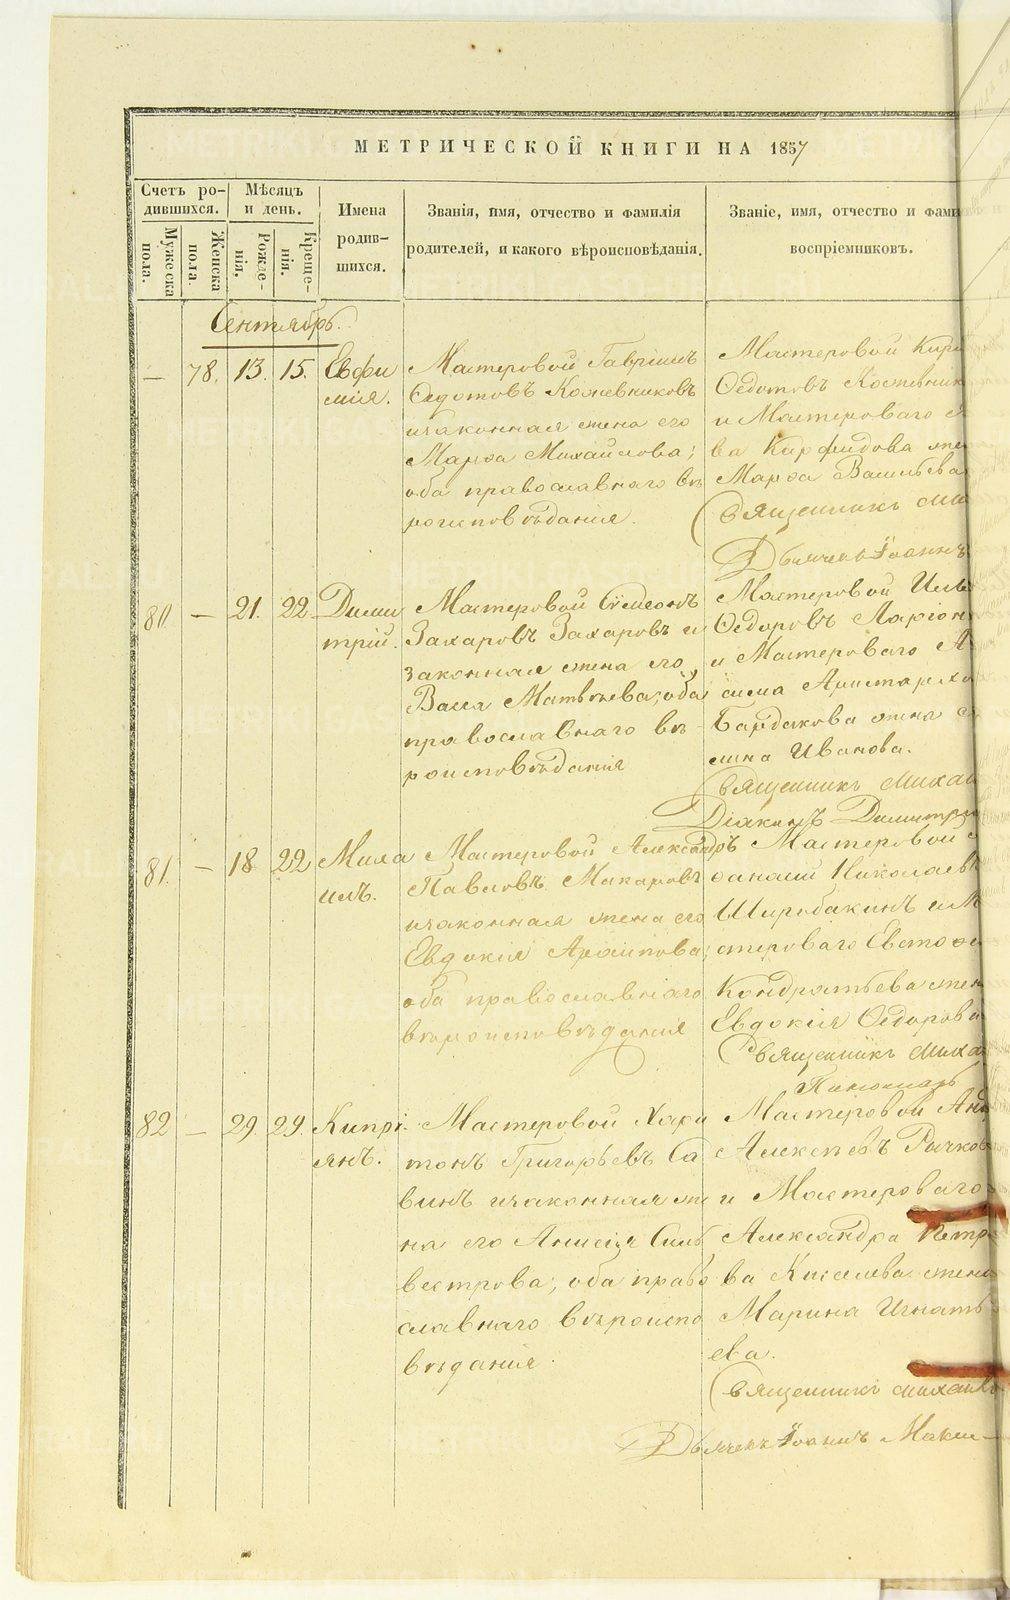 МЕТРИЧЕСКОЙ КНИГИ НА 1857
Счетъ ро-
дившихся.
Мѣсяцъ
и день.
Мужеска
пола.
Женска
пола.
Рожде-
нія.
Креще-
нія.
Имена
родив-
шихся.
Званія, имя, отчество и фамилія
родителей, и какого вѣроисповѣданія.
Званіе, имя, отчество и фами
воспріемниковъ.
Сентябрь.
— 78. 13. 15. Евфи
мія.
Мастеровой Гавріилъ
Ѳедотовъ Кожевниковъ
и законная жена его
Марѳа Михайлова;
оба православнаго вѣ
роисповѣданія.
Мастеровой Кири
Ѳедотовъ Кожевник
и Мастероваго
ва жен
Марѳа Васильева
Священникъ Ми
Дьячекъ Іоаннъ
80. — 21. 22. Дими
трій.
Мастеровой Сѵмеонъ
Захаровъ Захаровъ и
законная жена его
Васса Матвѣева; оба
православнаго вѣ-
роисповѣданія
Мастеровой Илья
Ѳедоровъ Ларіон
и Мастероваго А
сима Аристархо
Бардакова жена
мина Иванова.
Священникъ Михаи
Діаконъ Димитрій
81. — 18 22 Миха
илъ.
Мастеровой Александръ
Павловъ Макаровъ
и законная жена его
Евдокія Архипова;
оба православнаго
вѣроисповѣданія
Мастеровой
ѳанасій Николаевъ
Широбакинъ и М
стероваго Евстѳи
Кондратьева жен
Евдокія Ѳедорова
Священникъ Миха
Пономарь
82 — 29. 29. Кипрі-
янъ.
Мастеровой Хари
тонъ Григорьевъ Са
винъ и законная же
на его Анисія Силь
вестрова; оба право
славнаго вѣроиспо
вѣданія.
Мастеровой Анд
Алексѣевъ Рычков
и Мастероваго
Александра Петр
ва Киселева жена
Марина Игнать
ева.
Священникъ Михаил
Дьячекъ Іоаннъ Макси-